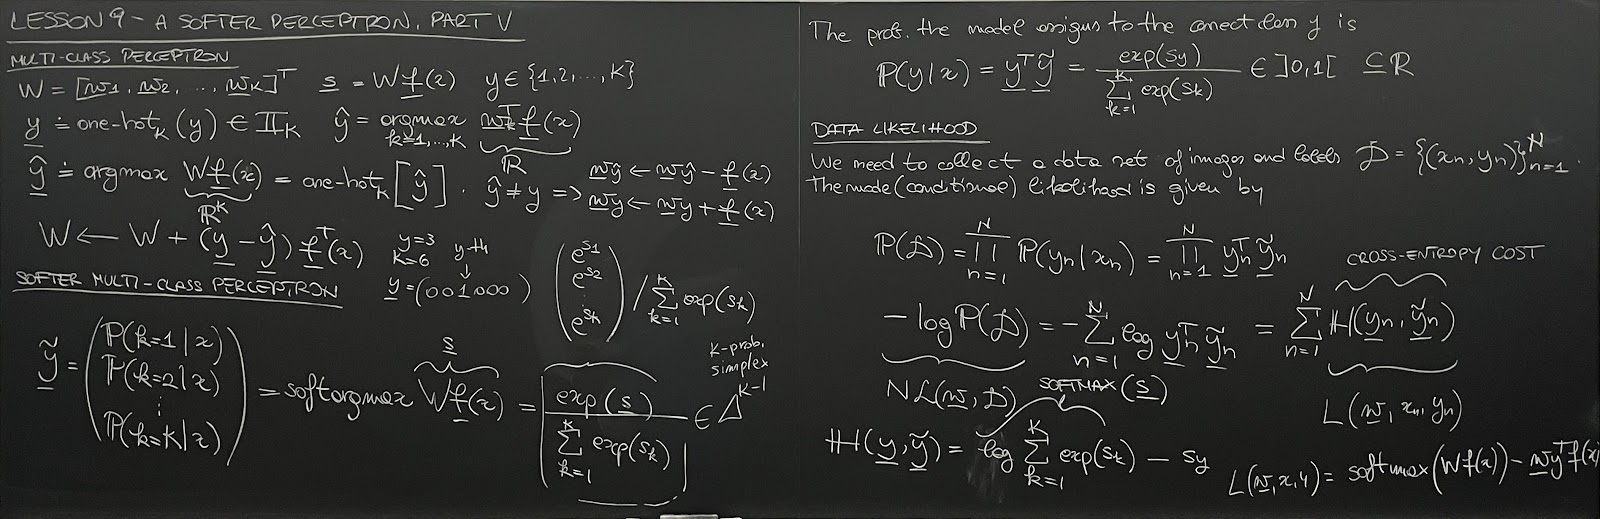 LESSON 9 - A SOFTER PERCEPTRON, PART V
MULTI-CLASS PERCEPTRON
W = [w1, w2, ..., wK]^T   s = W f(x)   y ∈ {1,2,...,K}
y ≐ one-hot_k (y) ∈ 𝕀_K   ŷ = argmax_{k=1,...,K} w_k^T f(x)
ℝ
ŷ ≐ argmax W f(x) = one-hot_k [ŷ] . ŷ ≠ y => w_ŷ ← w_ŷ - f(x)
ℝ^K   w_y ← w_y + f(x)
W ← W + (y - ŷ) f^T(x)
y=3
K=6   y-th
↓
y = (001000)
SOFTER MULTI-CLASS PERCEPTRON
(e^{s1} e^{s2} ⋮ e^{sk}) / ∑_{k=1}^{K} exp(s_k)
ỹ = (P(k=1|x) P(k=2|x) ⋮ P(k=K|x)) = softargmax W f(x) = exp(s) / ∑_{k=1}^{K} exp(s_k) ∈ Δ^{K-1}
s
K-prob.
simplex
The prob. the model assigns to the correct class y is
P(y|x) = y^T ỹ = exp(s_y) / ∑_{k=1}^{K} exp(s_k) ∈ ]0,1[ ⊆ ℝ
DATA LIKELIHOOD
We need to collect a data set of images and labels D = {(x_n, y_n)}_{n=1}^{N}.
The mode (conditional) likelihood is given by
P(D) = ∏_{n=1}^{N} P(y_n|x_n) = ∏_{n=1}^{N} y_n^T ỹ_n
CROSS-ENTROPY COST
-log P(D) = -∑_{n=1}^{N} log y_n^T ỹ_n = ∑_{n=1}^{N} H(y_n, ỹ_n)
N L(w, D)   SOFTMAX (s)   L(w, x_n, y_n)
H(y, ỹ) = log ∑_{k=1}^{K} exp(s_k) - s_y
L(w, x, y) = softmax(W f(x)) - w_y^T f(x)